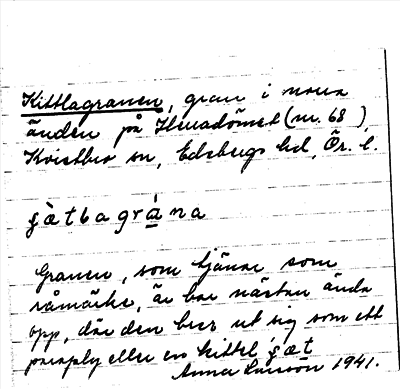 Kittlagranen, gran i norra
änden på (nr. 68),
Kvistbro sn, Edsbergs hd, Ör. l.
Granen, som tjänar som
råmärke, är bar nästan ända
opp, där den brer ut sig som ett
paraply eller en kittel
Anna Larsson 1941.